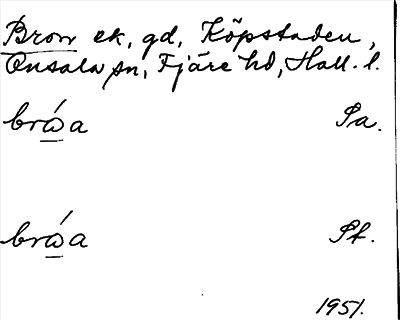 Brow ek, gd, Köpstaden,
Onsala sn, Fjäre hd, Hall. l.
brώa Sa.
brώa St.
1951.